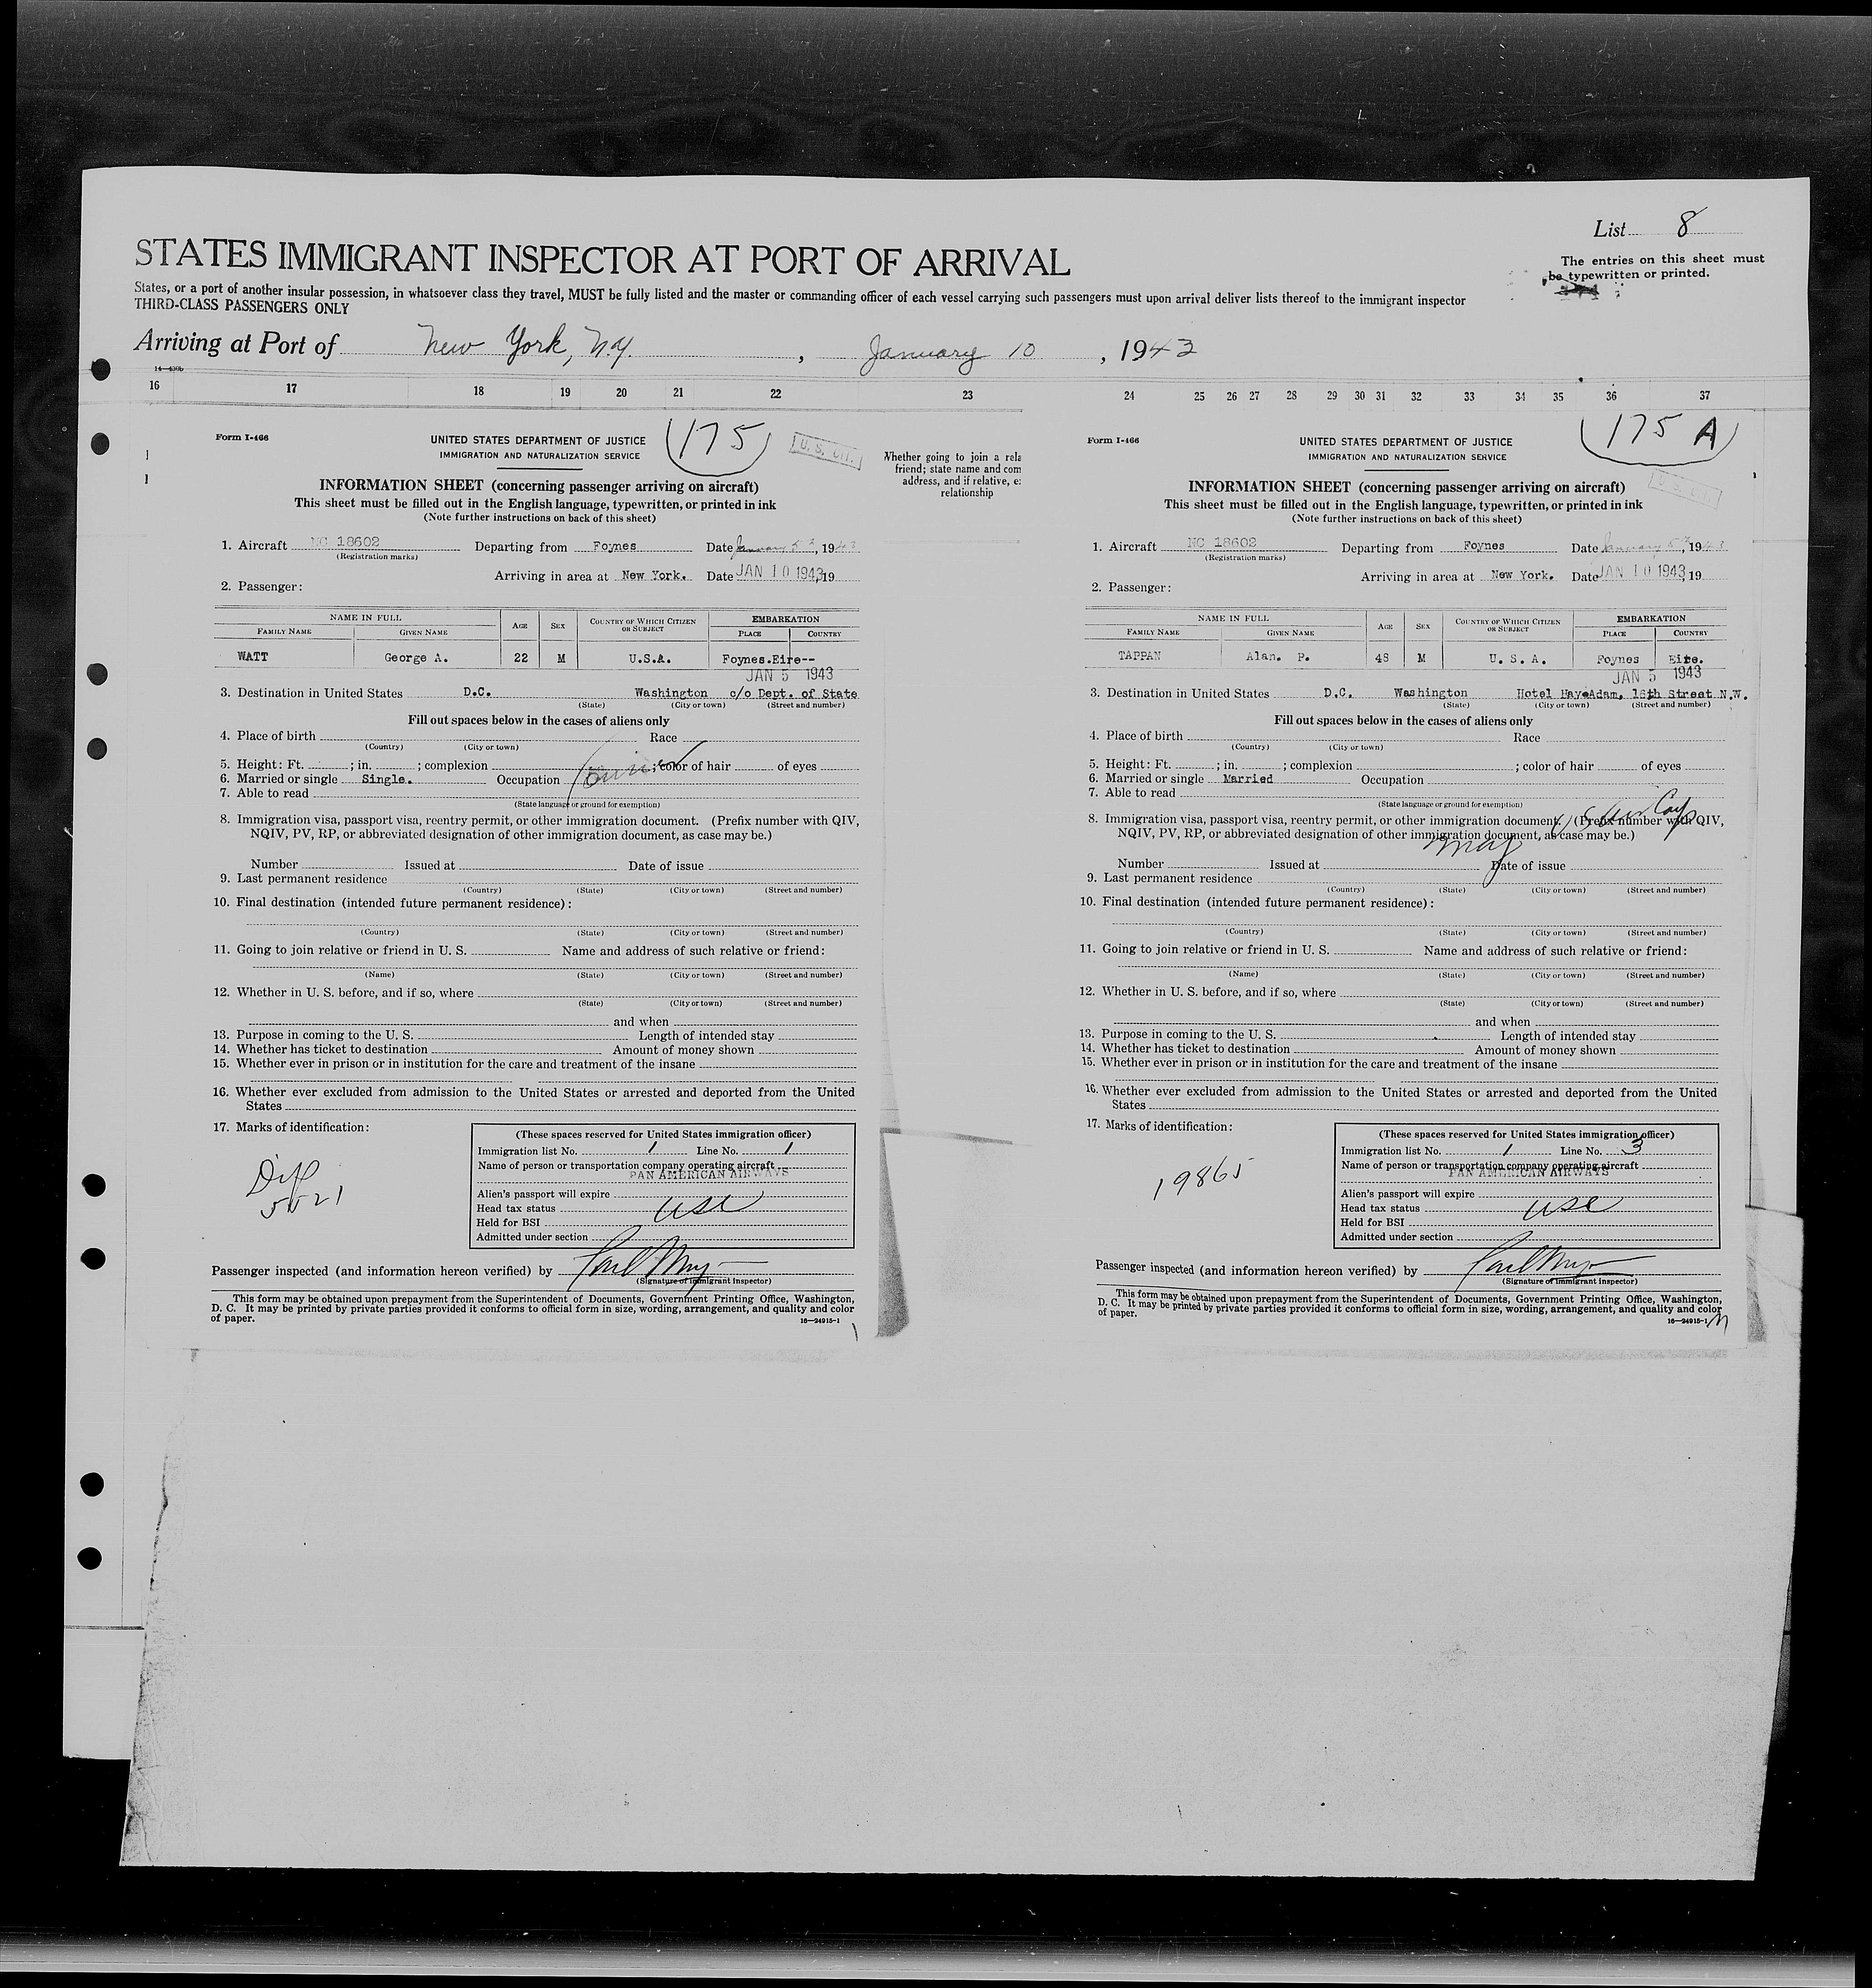 List 8
STATES IMMIGRANT INSPECTOR AT PORT OF ARRIVAL
The entries on this sheet must
be typewritten or printed.
States, or a port of another insular possession, in whatsoever class they travel, MUST be fully listed and the master or commanding officer of each vessel carrying such passengers must upon arrival deliver lists thereof to the immigrant inspector
THIRD-CLASS PASSENGERS ONLY
Arriving at Port of New York, N.Y. , January 10 , 1943
16 17 18 19 20 21 22 23 24 25 26 27 28 29 30 31 32 33 34 35 36 37
Form I-466
UNITED STATES DEPARTMENT OF JUSTICE
IMMIGRATION AND NATURALIZATION SERVICE
175
U.S. CIT.
INFORMATION SHEET (concerning passenger arriving on aircraft)
This sheet must be filled out in the English language, typewritten, or printed in ink
(Note further instructions on back of this sheet)
1. Aircraft NC 18602 Departing from Foynes Date January 5th, 1943
(Registration marks)
Arriving in area at New York. Date JAN 10 1943 19
2. Passenger:
NAME IN FULL AGE SEX COUNTRY OF WHICH CITIZEN OR SUBJECT EMBARKATION
FAMILY NAME GIVEN NAME PLACE COUNTRY
WATT George A. 22 M U.S.A. Foynes.Eire--
JAN 5 1943
3. Destination in United States D.C. Washington c/o Dept. of State
(State) (City or town) (Street and number)
Fill out spaces below in the cases of aliens only
4. Place of birth Race
(Country) (City or town)
5. Height: Ft. ; in. ; complexion ; color of hair of eyes
6. Married or single Single. Occupation
7. Able to read
(State language or ground for exemption)
8. Immigration visa, passport visa, reentry permit, or other immigration document. (Prefix number with QIV,
NQIV, PV, RP, or abbreviated designation of other immigration document, as case may be.)
Number Issued at Date of issue
9. Last permanent residence
(Country) (State) (City or town) (Street and number)
10. Final destination (intended future permanent residence):
(Country) (State) (City or town) (Street and number)
11. Going to join relative or friend in U. S. Name and address of such relative or friend:
(Name) (State) (City or town) (Street and number)
12. Whether in U. S. before, and if so, where
(State) (City or town) (Street and number)
and when
13. Purpose in coming to the U. S. Length of intended stay
14. Whether has ticket to destination Amount of money shown
15. Whether ever in prison or in institution for the care and treatment of the insane
16. Whether ever excluded from admission to the United States or arrested and deported from the United
States
17. Marks of identification:
Dip
5521
(These spaces reserved for United States immigration officer)
Immigration list No. 1 Line No. 1
Name of person or transportation company operating aircraft
PAN AMERICAN AIRWAYS
Alien's passport will expire
Head tax status USC
Held for BSI
Admitted under section
Passenger inspected (and information hereon verified) by
(Signature of Immigrant Inspector)
This form may be obtained upon prepayment from the Superintendent of Documents, Government Printing Office, Washington,
D. C. It may be printed by private parties provided it conforms to official form in size, wording, arrangement, and quality and color
of paper.
16—24915-1
Whether going to join a rela
friend; state name and com
address, and if relative, e
relationship
Form I-466
UNITED STATES DEPARTMENT OF JUSTICE
IMMIGRATION AND NATURALIZATION SERVICE
175 A
U.S. CIT.
INFORMATION SHEET (concerning passenger arriving on aircraft)
This sheet must be filled out in the English language, typewritten, or printed in ink
(Note further instructions on back of this sheet)
1. Aircraft NC 18602 Departing from Foynes Date January 5th, 1943
(Registration marks)
Arriving in area at New York. Date JAN 10 1943, 19
2. Passenger:
NAME IN FULL AGE SEX COUNTRY OF WHICH CITIZEN OR SUBJECT EMBARKATION
FAMILY NAME GIVEN NAME PLACE COUNTRY
TAPPAN Alan. P. 48 M U. S. A. Foynes Eire.
JAN 5 1943
3. Destination in United States D.C. Washington Hotel HayeAdam, 16th Street N.W.
(State) (City or town) (Street and number)
Fill out spaces below in the cases of aliens only
4. Place of birth Race
(Country) (City or town)
5. Height: Ft. ; in. ; complexion ; color of hair of eyes
6. Married or single Married Occupation
7. Able to read
(State language or ground for exemption)
8. Immigration visa, passport visa, reentry permit, or other immigration document. (Prefix number with QIV,
NQIV, PV, RP, or abbreviated designation of other immigration document, as case may be.)
Number Issued at Date of issue
9. Last permanent residence
(Country) (State) (City or town) (Street and number)
10. Final destination (intended future permanent residence):
(Country) (State) (City or town) (Street and number)
11. Going to join relative or friend in U. S. Name and address of such relative or friend:
(Name) (State) (City or town) (Street and number)
12. Whether in U. S. before, and if so, where
(State) (City or town) (Street and number)
and when
13. Purpose in coming to the U. S. Length of intended stay
14. Whether has ticket to destination Amount of money shown
15. Whether ever in prison or in institution for the care and treatment of the insane
16. Whether ever excluded from admission to the United States or arrested and deported from the United
States
17. Marks of identification:
19865
(These spaces reserved for United States immigration officer)
Immigration list No. 1 Line No. 3
Name of person or transportation company operating aircraft
PAN AMERICAN AIRWAYS
Alien's passport will expire
Head tax status USC
Held for BSI
Admitted under section
Passenger inspected (and information hereon verified) by
(Signature of Immigrant Inspector)
This form may be obtained upon prepayment from the Superintendent of Documents, Government Printing Office, Washington,
D. C. It may be printed by private parties provided it conforms to official form in size, wording, arrangement, and quality and color
of paper.
16—24915-1